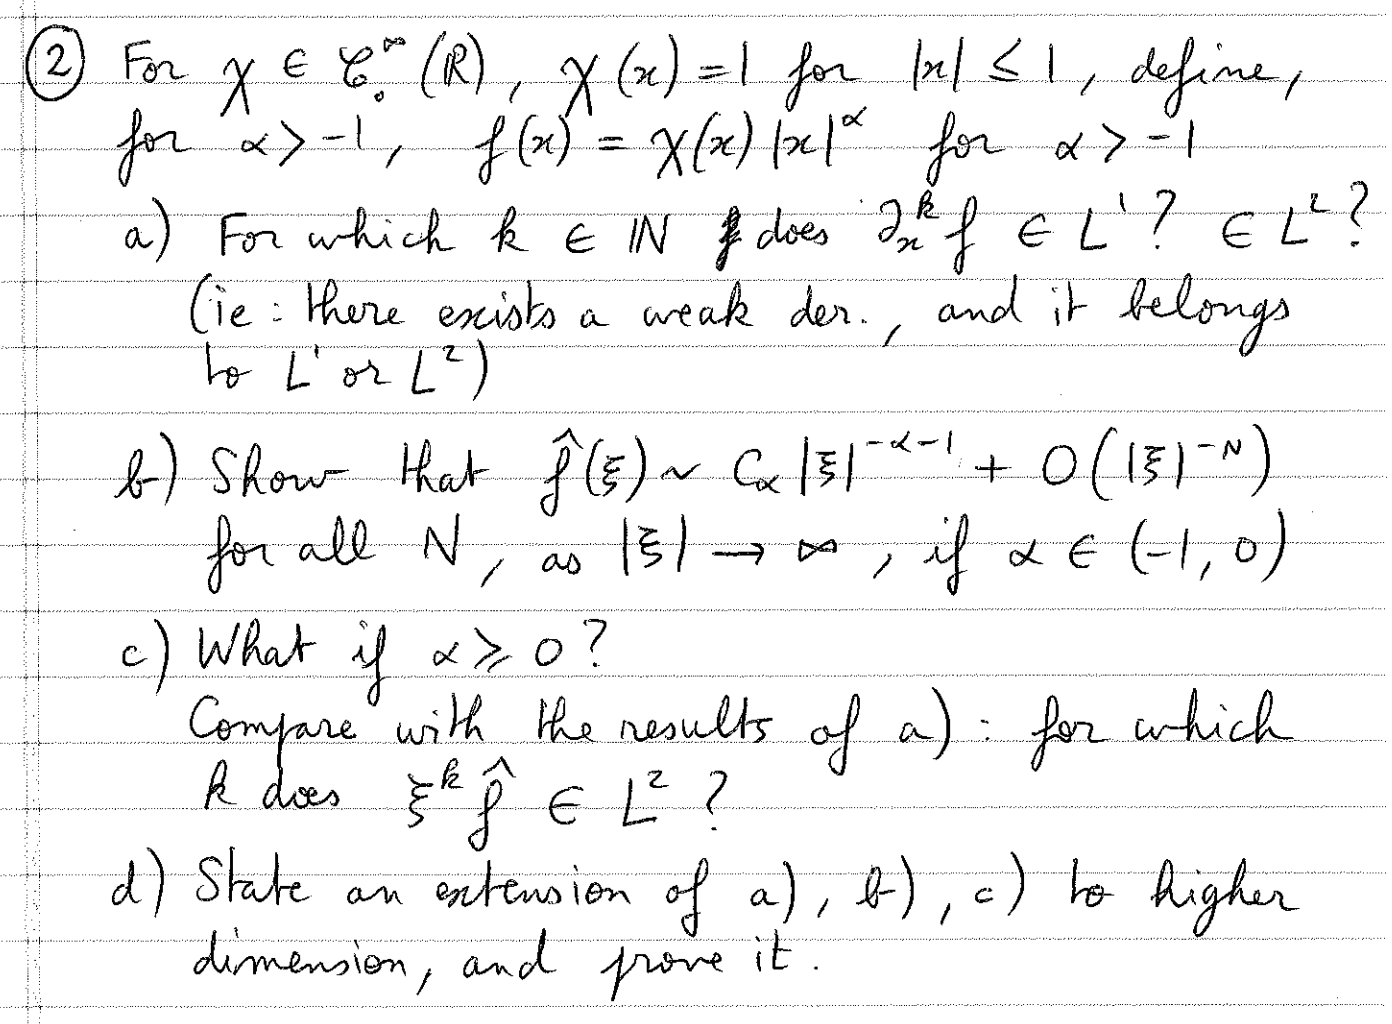 ② For χ ∈ C₀^∞(ℝ), χ(x) = 1 for |x| ≤ 1, define,
for α > -1, f(x) = χ(x) |x|^α for α > -1
a) For which k ∈ ℕ does ∂ₓ^k f ∈ L¹? ∈ L²?
(ie: there exists a weak der., and it belongs
to L¹ or L²)
b) Show that f̂(ξ) ~ C_α |ξ|^{-α-1} + O(|ξ|^{-N})
for all N, as |ξ| → ∞, if α ∈ (-1, 0)
c) What if α ⩾ 0?
Compare with the results of a): for which
k does ξ^k f̂ ∈ L²?
d) State an extension of a), b), c) to higher
dimension, and prove it.